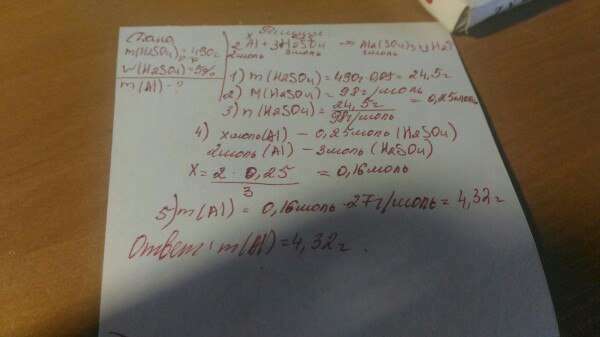 Дано
m(H2SO4)р-р = 490г
W(H2SO4) = 5%
m(Al) - ?
Решение
x
2Al + 3H2SO4 → Al2(SO4)3 + H2↑
2моль 3моль 1моль
1) m(H2SO4) = 490г · 0,05 = 24,5г
2) M(H2SO4) = 98г/моль
3) n(H2SO4) = 24,5г / 98г/моль = 0,25моль
4) x моль (Al) - 0,25моль (H2SO4)
2моль (Al) - 3моль (H2SO4)
x = 2 · 0,25 / 3 = 0,16моль
5) m(Al) = 0,16моль · 27г/моль = 4,32г
Ответ: m(Al) = 4,32г.